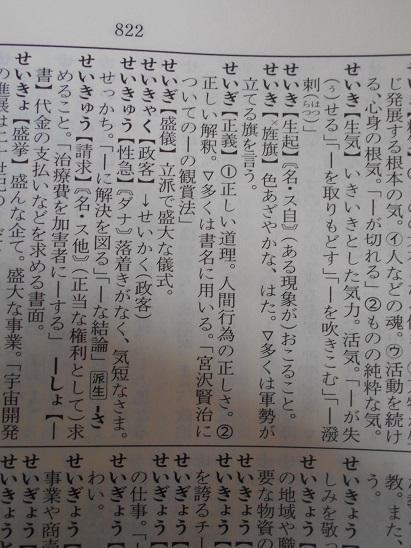 822
じ発展する根本の気。㋑人などの魂。㋒活動を続け
る、心身の根気。「―が切れる」②ものの純粋な気。
せいき【生気】いきいきとした気力。活気。「―が失
(う)せる」「―を取りもどす」「―を吹きこむ」「―潑
刺(らはつ)」
せいき【生起】《名・ス自》(ある現象が)おこること。
せいき【×旌旗】色あざやかな、はた。▽多くは軍勢が
立てる旗を言う。
せいぎ【正義】①正しい道理。人間行為の正しさ。②
正しい解釈。▽多くは書名に用いる。「宮沢賢治に
ついての―の観賞法」
せいぎ【盛儀】立派で盛大な儀式。
せいきゃく【政客】→せいかく(政客)
せいきゅう【性急】《ダナ》落着きがなく、気短なさま。
せっかち。「―に解決を図る」「―な結論」派生―さ
せいきゅう【請求】《名・ス他》(正当な権利として)求
めること。「治療費を加害者に―する」―しょ【―
書】代金の支払いなどを求める書面。
せいきょ【盛挙】盛んな企て。盛大な事業。「宇宙開発
教。また、
う。
せいきょう
しみを敬
せいきょう
の地域や職
要な物資の
せいきょう
を誇るチー
せいきょう
せいぎょう
の仕事。「
せいぎょう
わい。
せいぎょう
事業や商売
せいきょうと